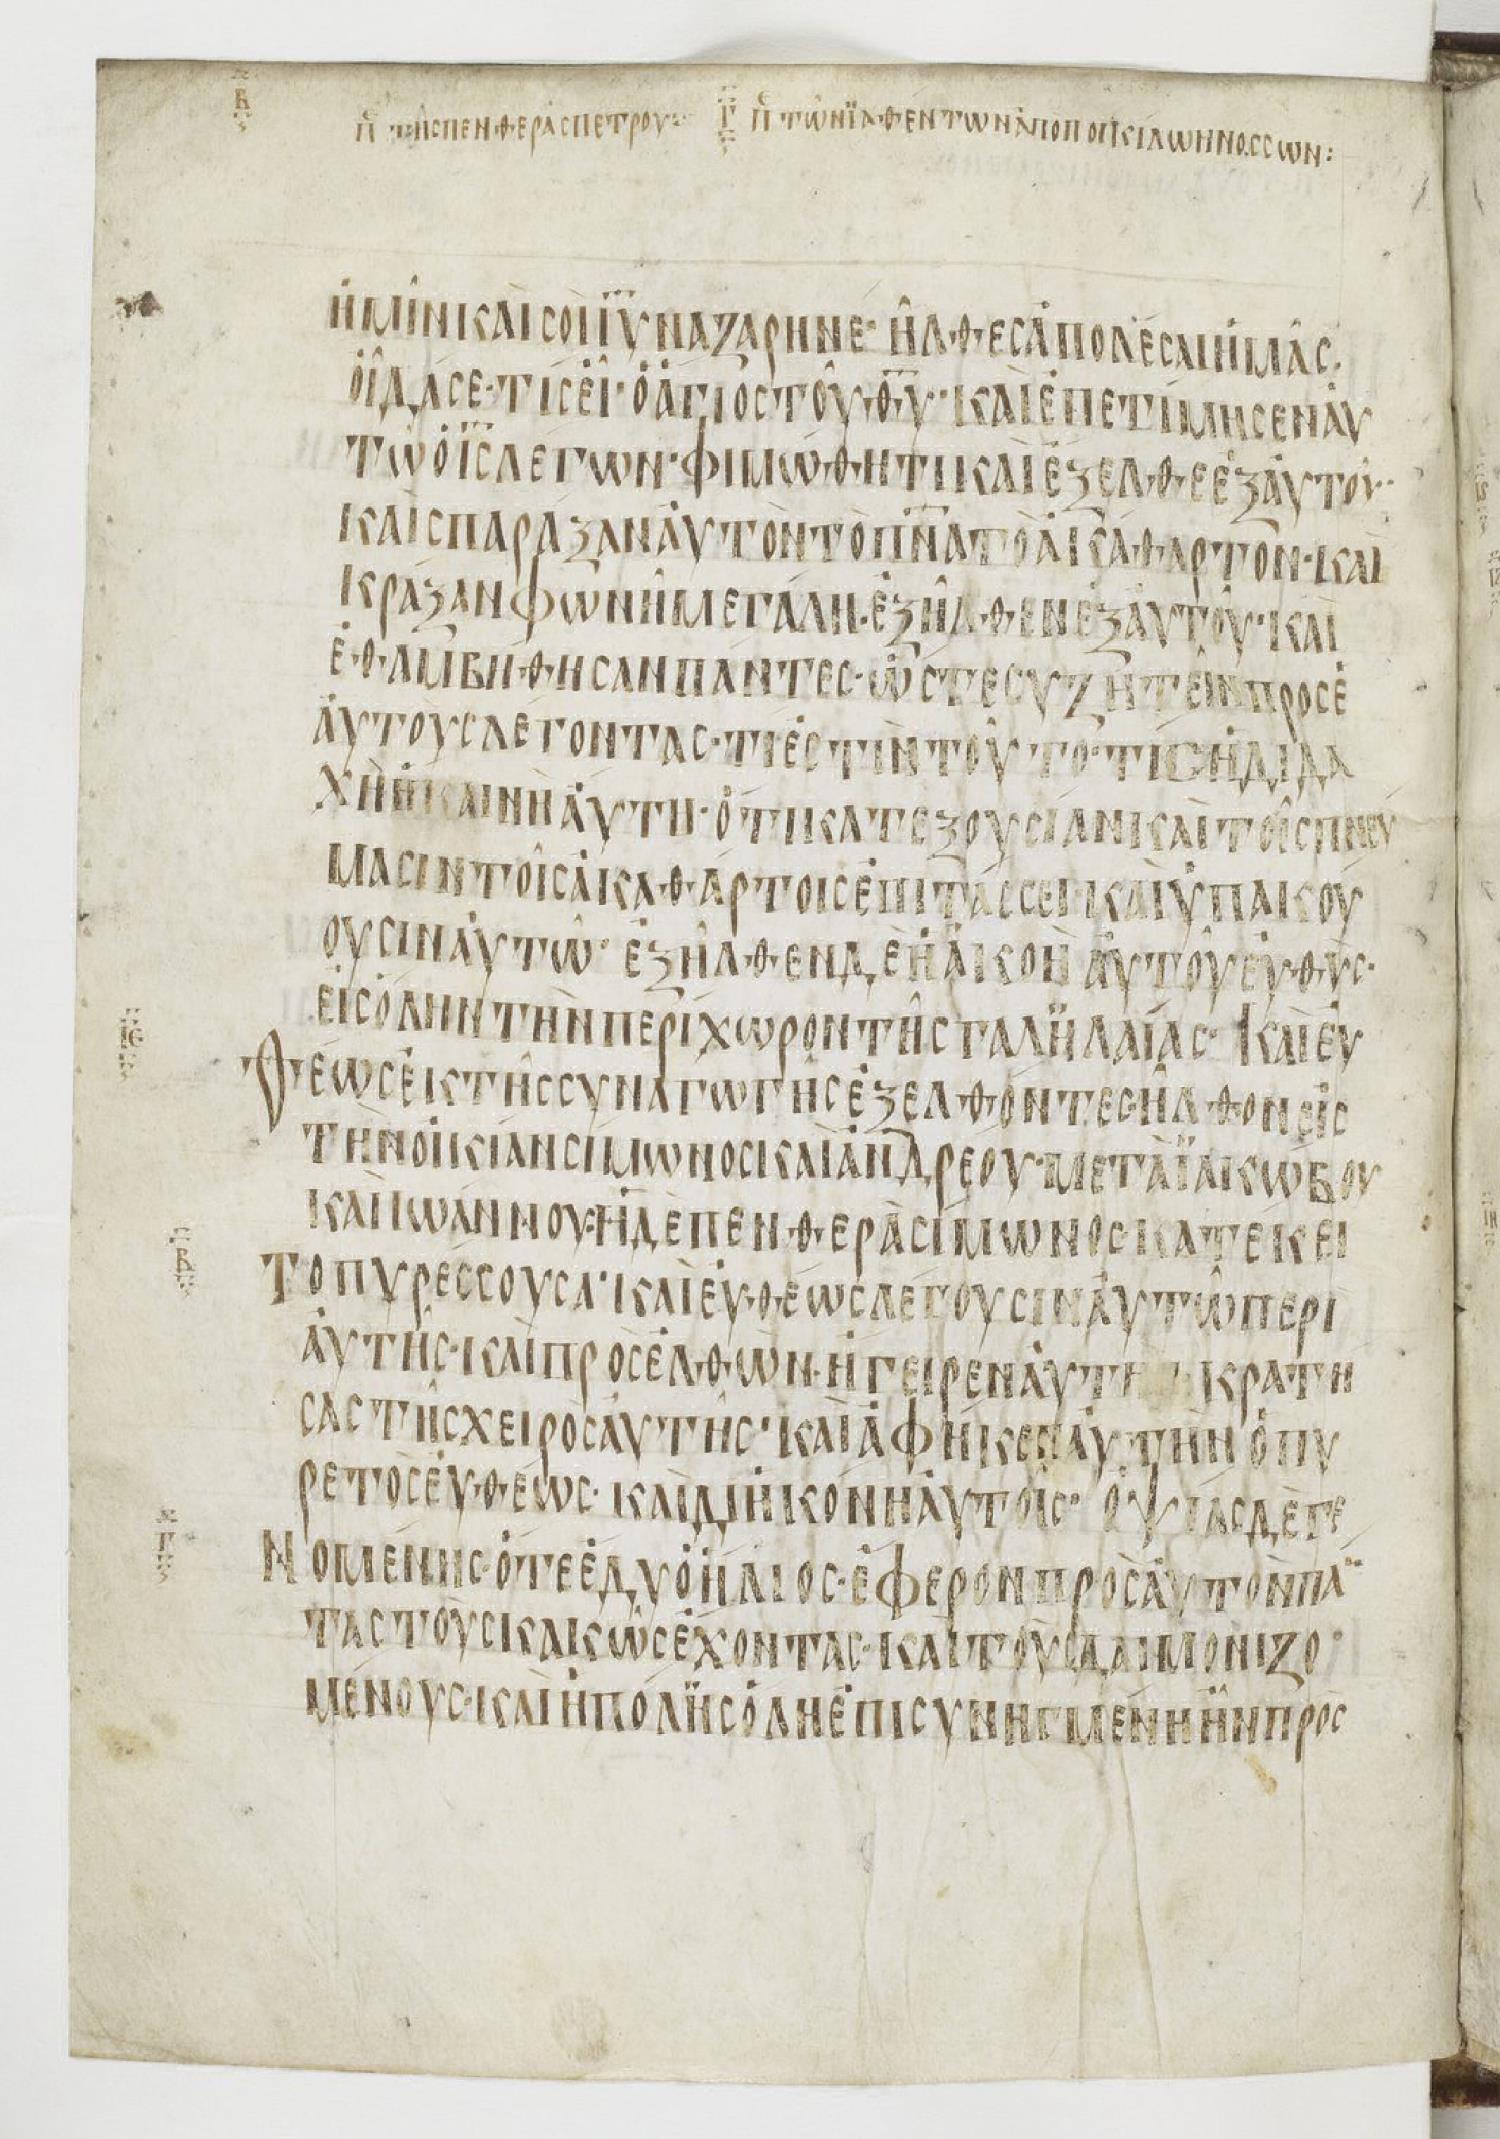 Β Π̅ ΤΗ͂Σ ΠΕΝΘΕΡᾶΣ ΠΕΤΡΟΥ: Γ Π̅ ΤῶΝ ἸΑΘΕΝΤΩΝ ἀΠΟ ΠΟΙΚΙΛΩΗ ΝΟΣΣΩΝ:
ἡΜῖΝ ΚΑὶ ΣΟὶ ΙΥ ΝΑΖΑΡΗΝΕ· ἦΛΘΕΣ ἀΠΟΛΕΣΑΙ ἡΜᾶΣ·
ΟἶΔΑ ΣΕ· ΤΙΣ Εἶ· Ὁ ἅΓΙΟΣ ΤΟῦ ΘΥ· ΚΑὶ ἐΠΕΤΙΜΗΣΕΝ ΑὐΤῶ
ΤῶΟ ΙΣ ΛΕΓΩΝ· ΦΙΜΩΘΗΤΙ ΚΑὶ ἔΞΕΛΘΕ ἐΞ ΑὐΤΟῦ·
ΚΑὶ ΣΠΑΡΑΞΑΝ ΑὐΤὸΝ ΤὸΠΝΑ Τὸ ἀΚΑΘΑΡΤΟΝ· ΚΑὶ
ΚΡΑΞΑΝ ΦΩΝῆ ΜΕΓΑΛΗ· ἐΞῆΛΘΕΝ ἐΞ ΑὐΤΟῦ· ΚΑὶ
ἐΘΑΜΒΗΘΗΣΑΝ ΠΑΝΤΕΣ· ὥΣΤΕ ΣΥΖΗΤΕῖΝ ΠΡΟΣ ἑ
ΑΥΤΟὺΣ ΛΕΓΟΝΤΑΣ· ΤΙ ἐΣΤὶΝ ΤΟῦΤΟ· ΤΙΣ ἡ ΔΙΔΑ
ΧὴΗ ΚΑΙΝὴ ΑὕΤΗ· ὅΤΙ ΚΑΤΕΞΟΥΣΙΑΝ ΚΑὶ ΤΟῖΣ ΠΝΕΥ
ΜΑΣΙΝ ΤΟῖΣ ἀΚΑΘΑΡΤΟΙΣ ἐΠΙΤΑΣΣΕΙ· ΚΑὶ ὑΠΑΚΟΥ
ΟΥΣΙΝ ΑὐΤῶ· ἐΞῆΛΘΕΝ Δὲ ἡ ἀΚΟὴ ΑὐΤΟῦ ΕὐΘὺΣ·
ΕἰΣ ὅΛΗΝ ΤὴΝ ΠΕΡΙΧΩΡΟΝ ΤῆΣ ΓΑΛΗΛΑΙΑΣ· ΚΑὶ ΕὐΥ
ΘΕΩΣ ἐΚ ΤῆΣ ΣΥΝΑΓΩΓῆΣ ἐΞΕΛΘΟΝΤΕΣ ἦΛΘΟΝ ΕἰΣ
ΤΗΝ ΟἰΚΙΑΝ ΣΙΜΩΝΟΣ ΚΑὶ ἀΝΔΡΕΟΥ· ΜΕΤὰ ἸΑΚΩΒΟΥ
ΚΑὶ ΙΩΑΝΝΟΥ· ἡ Δὲ ΠΕΝΘΕΡὰ ΣΙΜΩΝΟΣ· ΚΑΤΕΚΕΙ
ΤΟ ΠΥΡΕΣΣΟΥΣΑ· ΚΑὶ ΕὐΘΕΩΣ ΛΕΓΟΥΣΙΝ ΑὐΤῶ ΠΕΡΙ
ΑὐΤῆΣ· ΚΑὶ ΠΡΟΣΕΛΘὼΝ· ἤΓΕΙΡΕΝ ΑὐΤΗ ΚΡΑΤΗ
ΣΑΣ ΤῆΣ ΧΕΙΡΟΣ ΑὐΤῆΣ· ΚΑὶ ἀΦΗΚΕΝ ΑὐΤὴΝ ὁ ΠΥ
ΡΕΤΟΣ ΕὐΘΕΩΣ· ΚΑὶ ΔΙΗΚΟΝΗ ΑὐΤΟῖΣ· ὈΨΙΑΣ Δὲ ΓΕ
ΝΟΜΕΝΗΣ· ὅΤΕ ἔΔΥ ὁ ἥΛΙΟΣ· ἔΦΕΡΟΝ ΠΡὸΣ ΑὐΤΟΝ ΠΑ
ΤΑΣ ΤΟὺΣ ΚΑΚῶΣ ἔΧΟΝΤΑΣ· ΚΑὶ ΤΟὺΣ ΔΑΙΜΟΝΙΖΟ
ΜΕΝΟΥΣ· ΚΑὶ ἡ ΠΟΛΗΣ ὅΛΗ ἐΠΙΣΥΝΗΓΜΕΝΗ ἦΝ ΠΡΟΣ
ΙΕ
Β
Γ